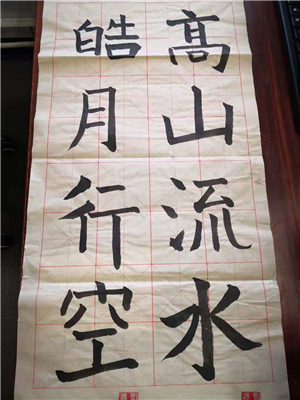 高山流水
皓月行空